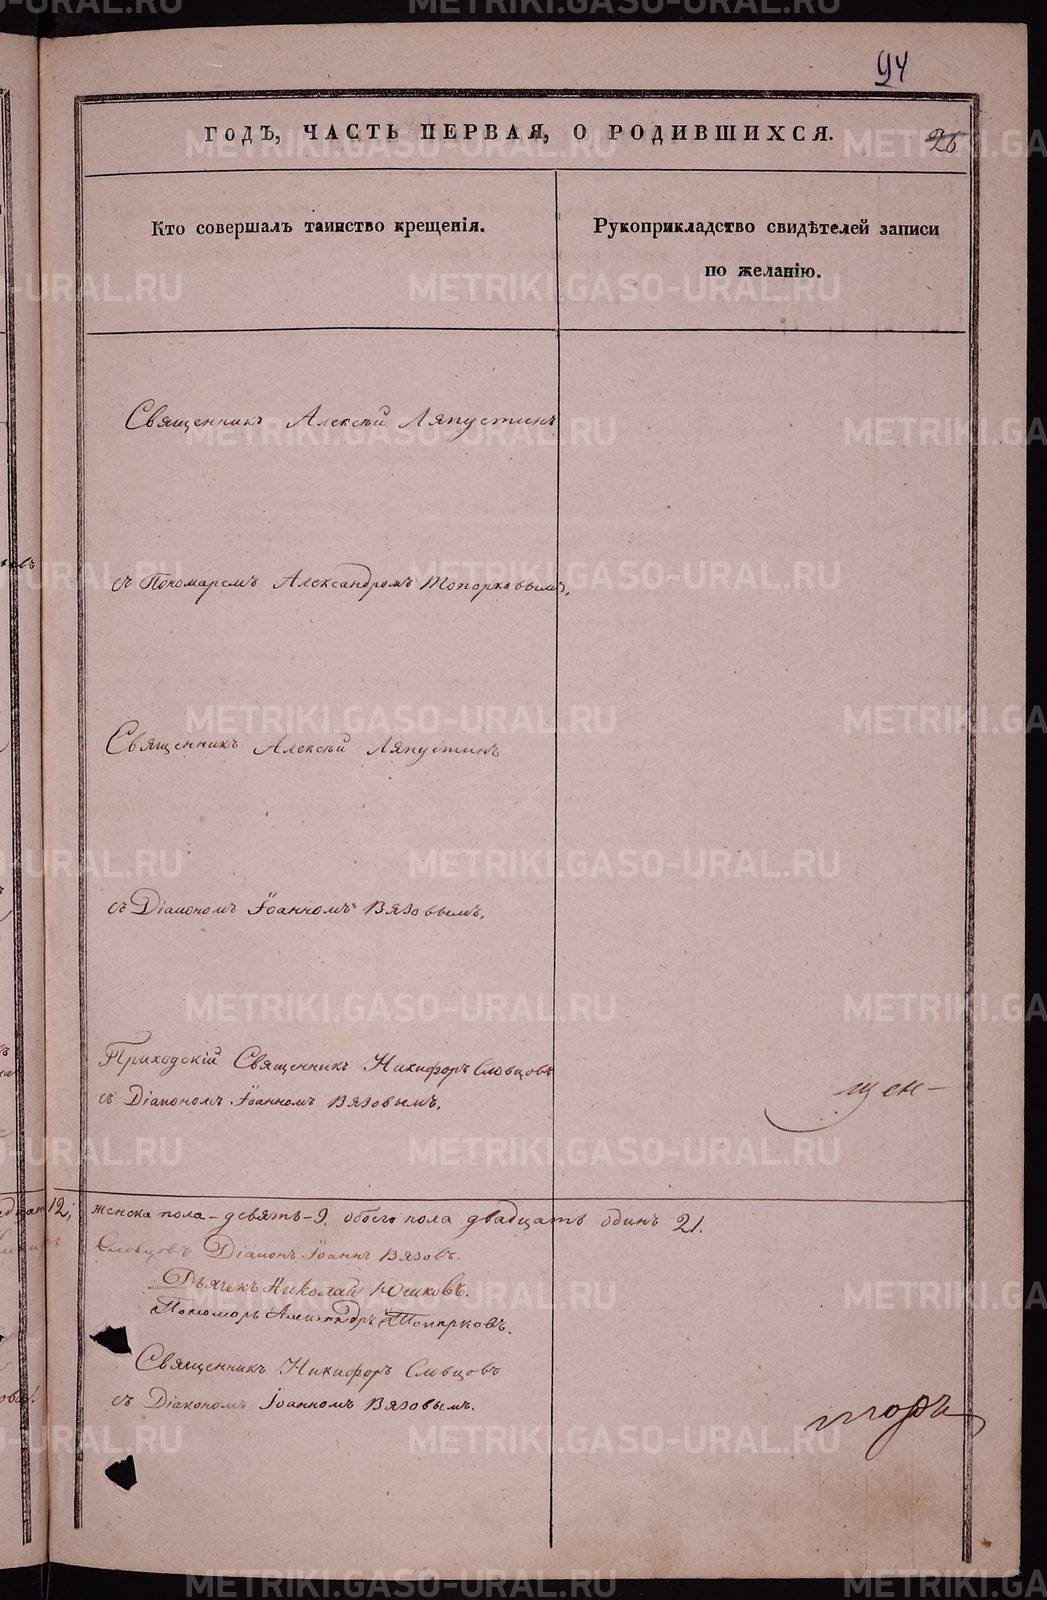 94
ГОДЪ, ЧАСТЬ ПЕРВАЯ, О РОДИВШИХСЯ.
26
Кто совершалъ таинство крещенія.
Рукоприкладство свидѣтелей записи
по желанію.
Священникъ Алексѣй Ляпустинъ
съ Пономаремъ Александромъ Топорковымъ,
Священникъ Алексѣй Ляпустинъ
съ Діакономъ Іоанномъ Вязовымъ,
Приходскій Священникъ Никифоръ Словцовъ
съ Діакономъ Іоанномъ Вязовымъ,
-щен-
12,
женска пола - девять - 9. обоего пола двадцать одинъ 21.
Словцовъ Діаконъ Іоаннъ Вязовъ.
Дьячекъ Николай Юшковъ.
Пономарь Александръ Топорковъ.
Священникъ Никифоръ Словцовъ
съ Діакономъ Іоанномъ Вязовымъ.
METRIKI.GASO-URAL.RU